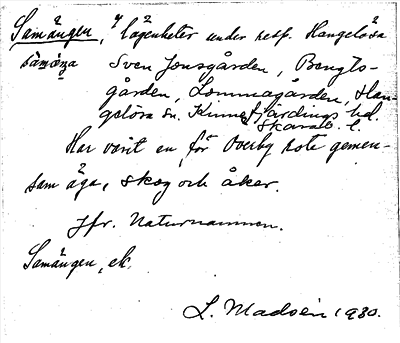 Samängen, 4 lägenheter under resp. Hangelösa
sàmæ̀ŋa Sven Jonsgården, Bengts-
gården, Lommagården, Han-
gelösa sn. Kinnefjärdings hd.
Skarab. l.
Har varit en för Överby rote gemen-
sam äga, skog och åker.
Jfr. Naturnamnen.
Samängen, ek.
L. Madsén 1930.